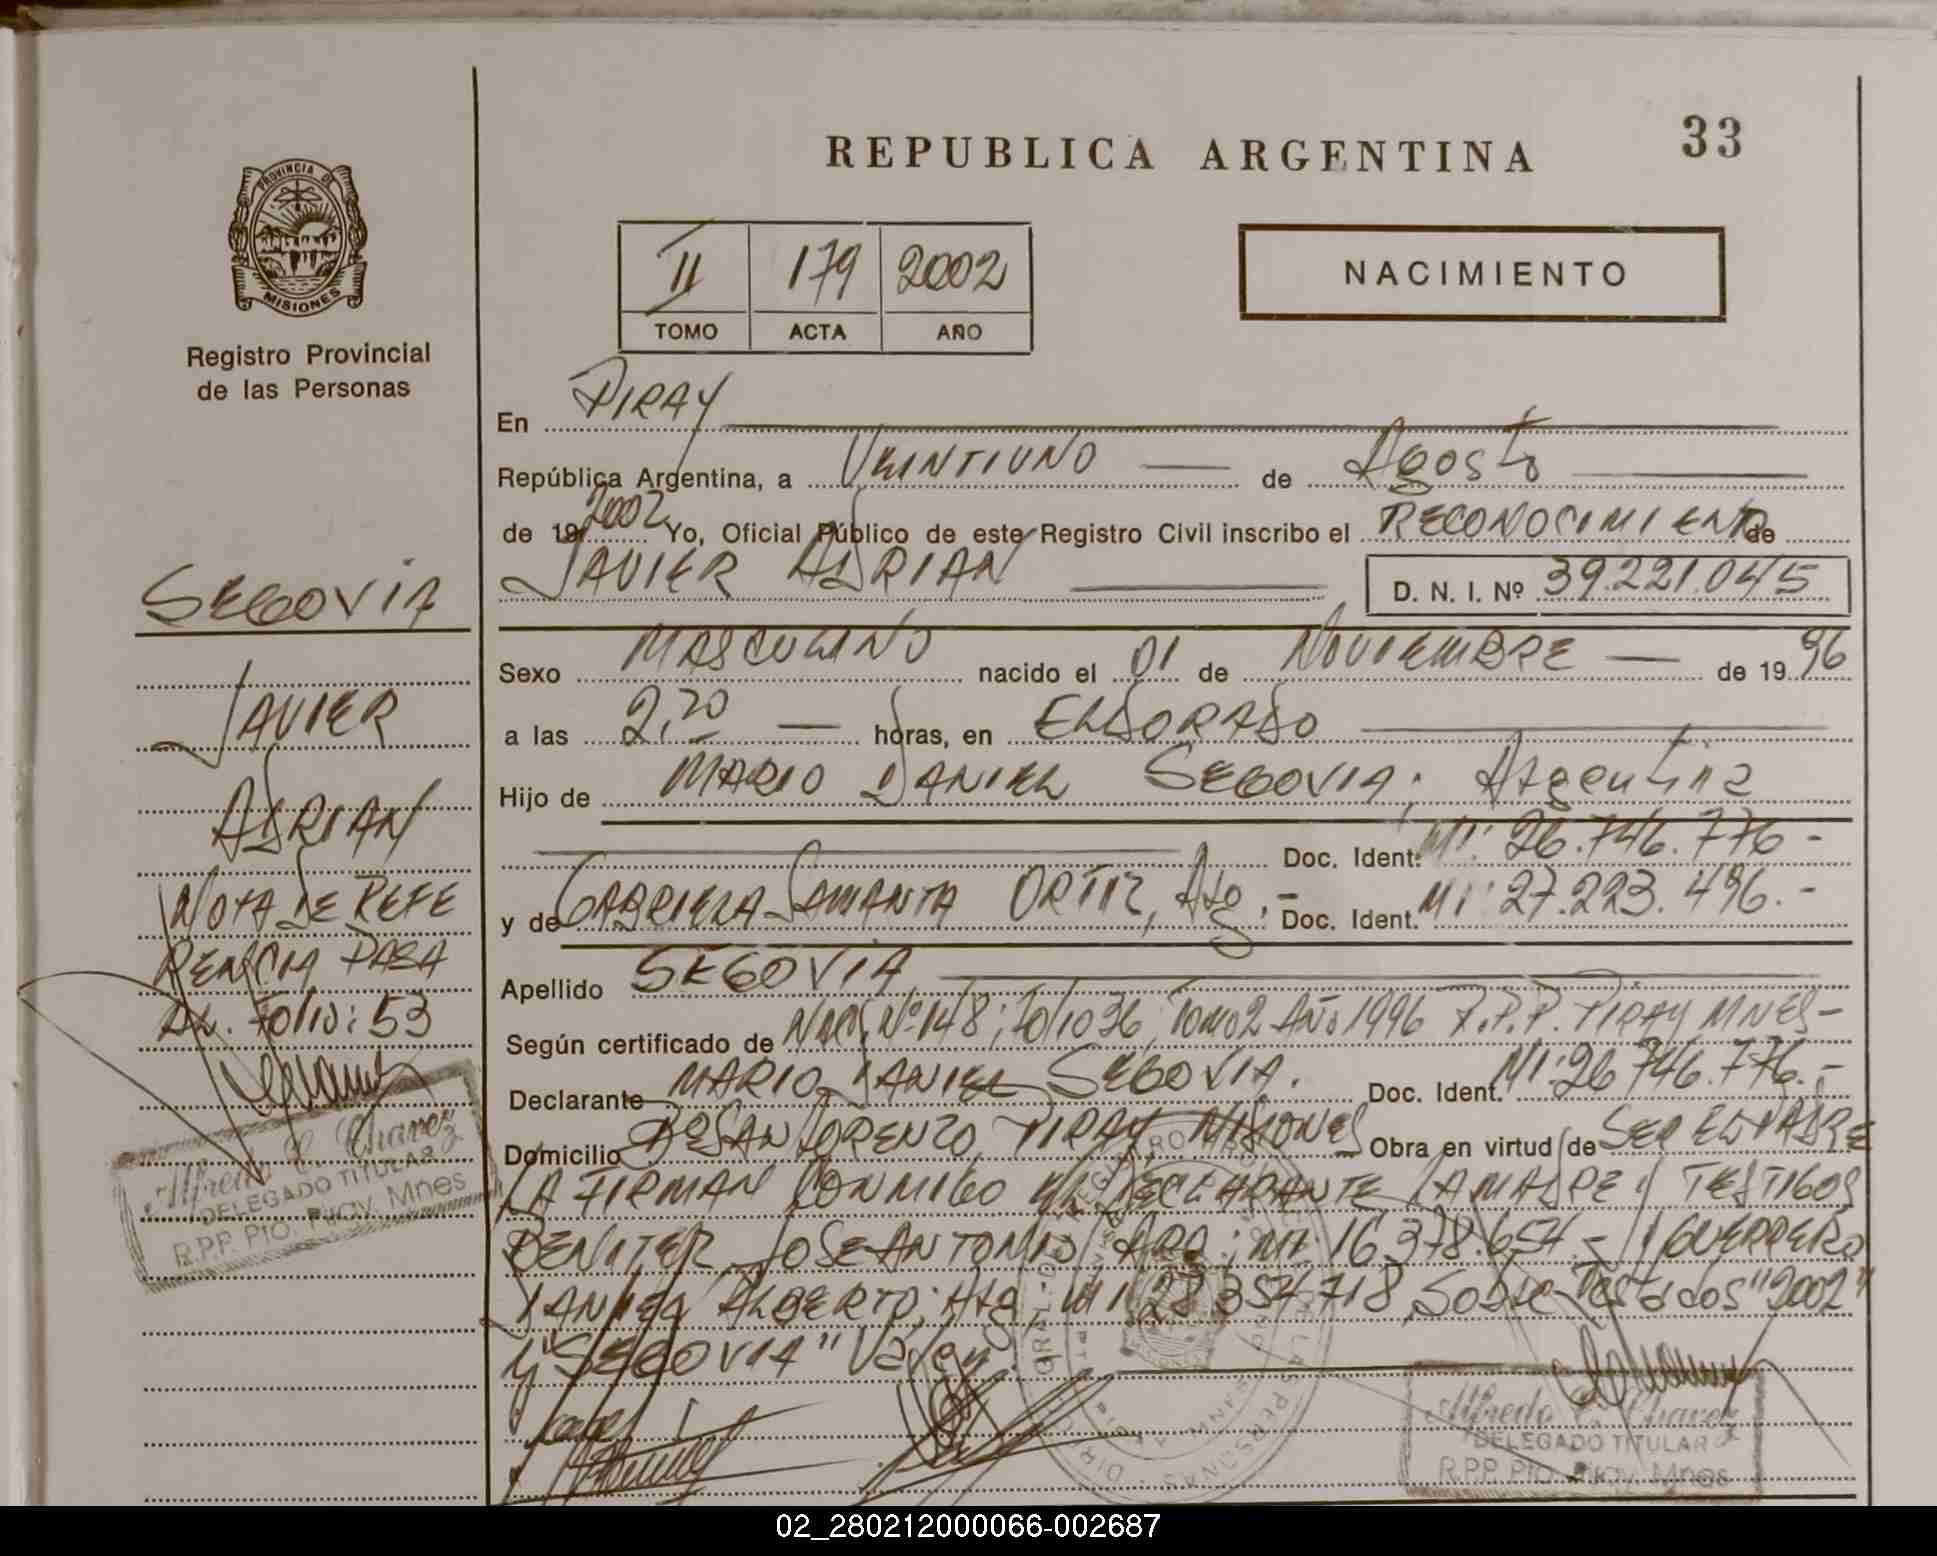 33
REPUBLICA ARGENTINA
PROVINCIA DE
MISIONES
Registro Provincial
de las Personas
II 179 2002
TOMO ACTA AÑO
NACIMIENTO
En PIRAY
República Argentina, a VEINTIUNO de Agosto
de 19 2002 Yo, Oficial Público de este Registro Civil inscribo el RECONOCIMIENTO de
JAVIER ADRIAN D. N. I. Nº 39.221.045
Sexo MASCULINO nacido el 01 de NOVIEMBRE de 1996
a las 2,20 horas, en ELDORADO
Hijo de MARIO DANIEL SEGOVIA; Argentina
Doc. Ident: MI: 26.746.776.-
y de GABRIELA SAMANTA ORTIZ, Arg.- Doc. Ident. MI: 27.223.496.-
Apellido SEGOVIA
Según certificado de NAC, Nº 148; Folio 36; Tomo 2 Año 1996 R.P.P. PIRAY MNES-
Declarante MARIO DANIEL SEGOVIA. Doc. Ident. MI:26.746.776.-
Domicilio Bº SAN LORENZO PIRAY MISIONES Obra en virtud de SER EL PADRE
LA FIRMAN CONMIGO EL DECLARANTE LA MADRE y TESTIGOS
BENITEZ JOSE ANTONIO ARG; MI: 16.378.654.- y GUERRERO
DANIEL ALBERTO; Arg, MI 28.354.718, Sobre Testados "2002"
y "SEGOVIA" Valen
SEGOVIA
JAVIER
ADRIAN
NOTA DE REFE
RENCIA PASA
AL. Folio: 53
Alfredo C. Chavez
DELEGADO TITULAR
R.P.P. Pto. Piray. Mnes
Alfredo C. Chavez
DELEGADO TITULAR
R.P.P. Pto. Piray. Mnes
02_280212000066-002687